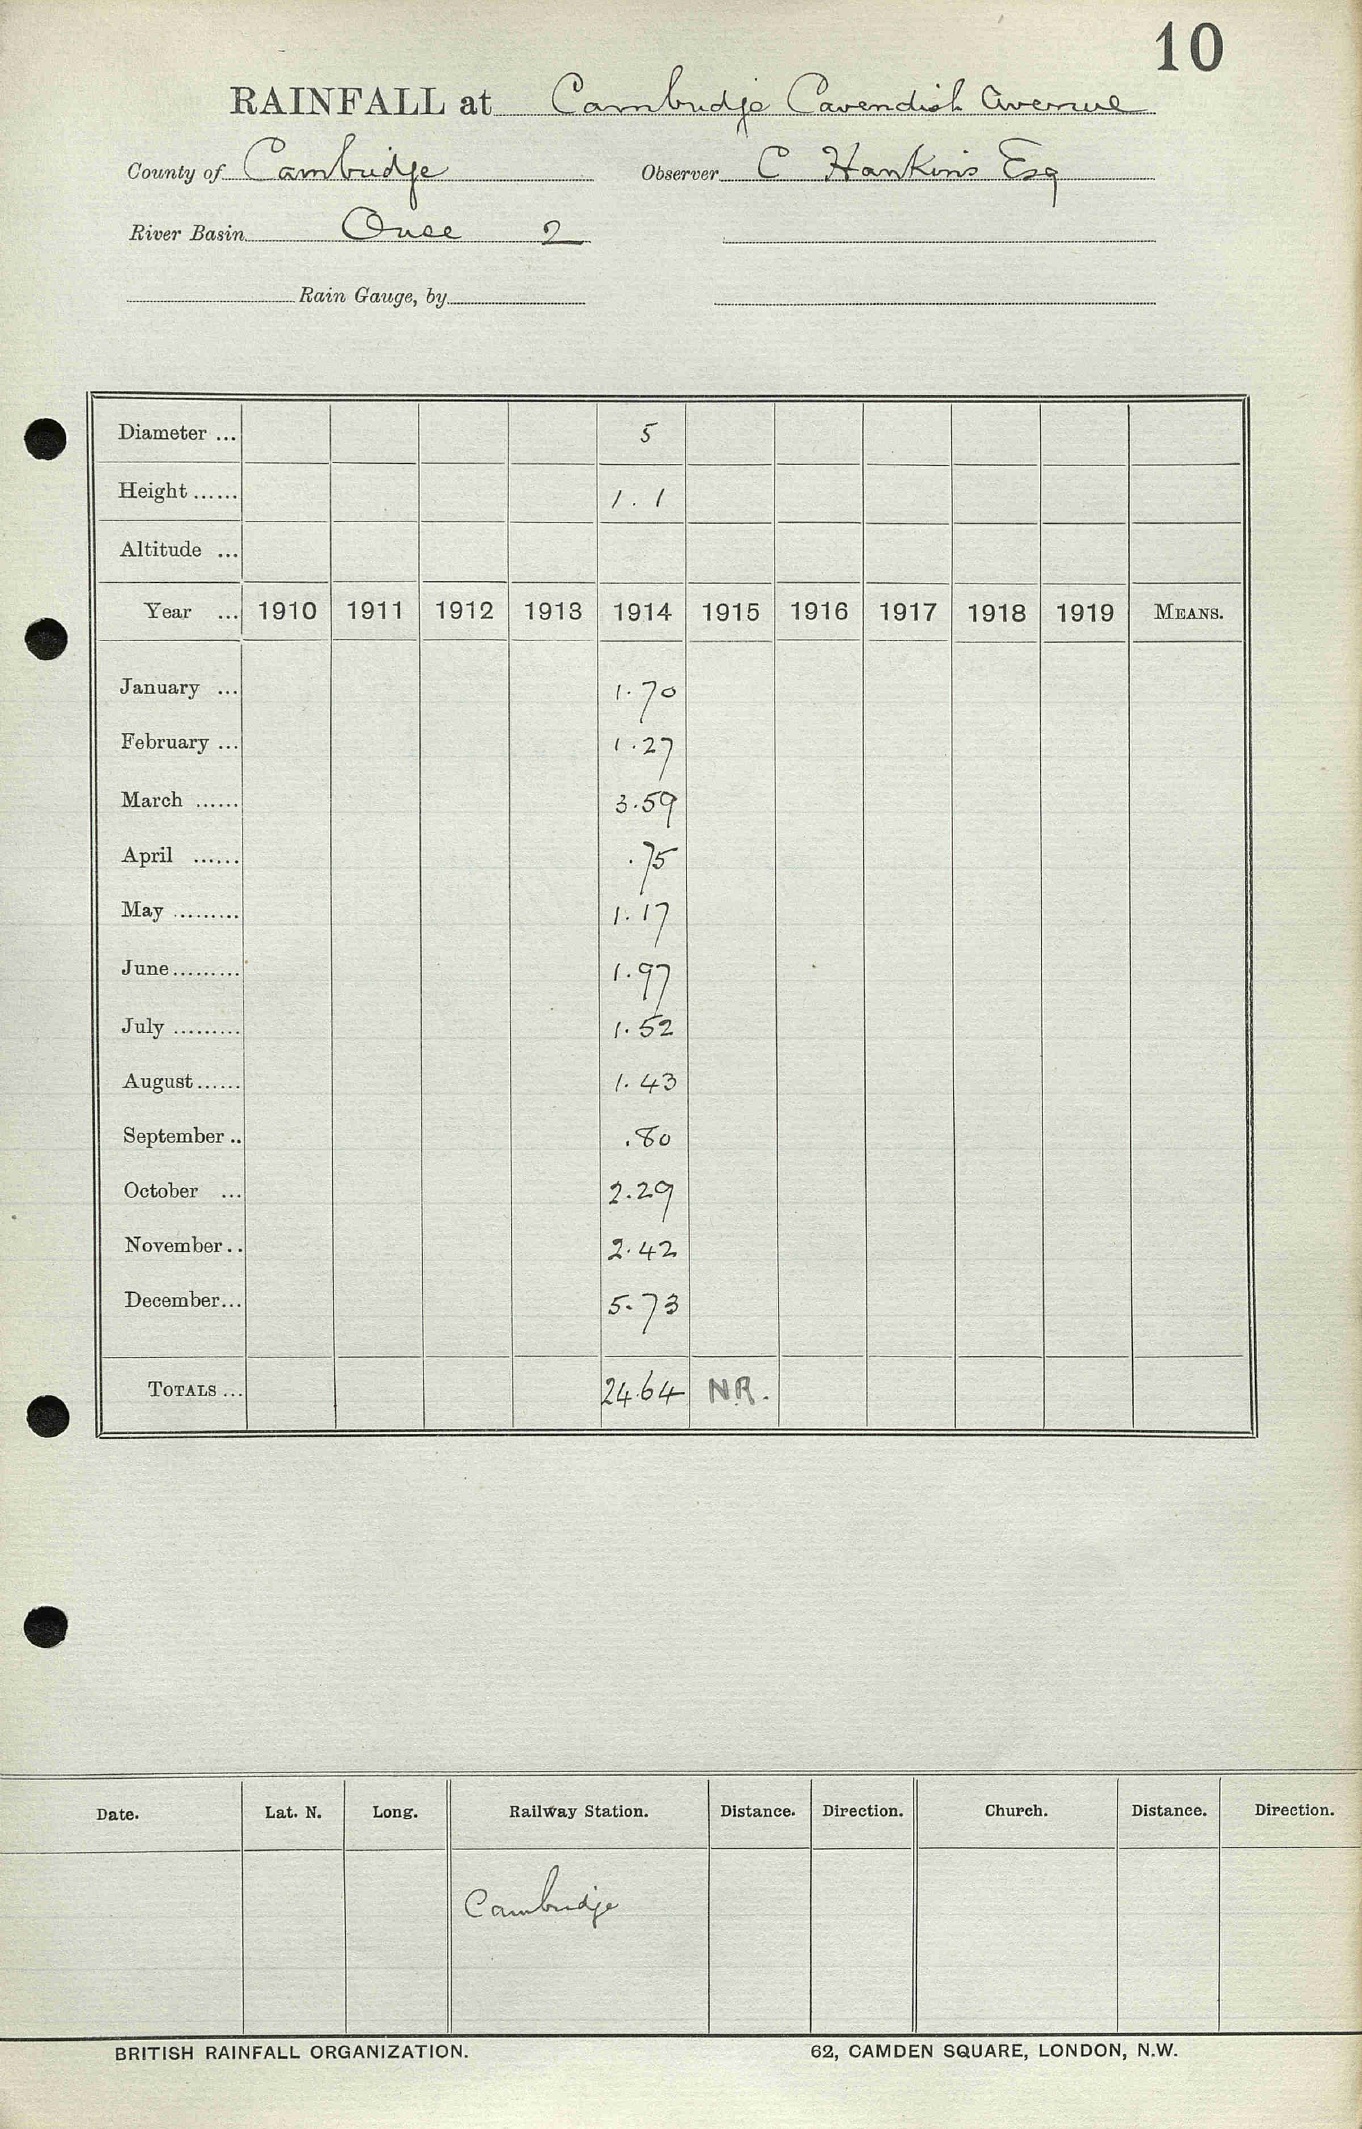 10
RAINFALL at Cambridge Cavendish Avenue
County of Cambridge Observer C Hankins Esq
River Basin Ouse 2
Rain Gauge, by
Diameter ... 5
Height ...... 1.1
Altitude ...
Year ... 1910 1911 1912 1913 1914 1915 1916 1917 1918 1919 MEANS.
January ... 1.70
February ... 1.27
March ...... 3.59
April ...... .75
May ......... 1.17
June ......... 1.97
July ......... 1.52
August ...... 1.43
September .. .80
October ... 2.29
November .. 2.42
December ... 5.73
TOTALS ... 24.64 NR.
Date. Lat. N. Long. Railway Station. Distance. Direction. Church. Distance. Direction.
Cambridge
BRITISH RAINFALL ORGANIZATION. 62, CAMDEN SQUARE, LONDON, N.W.